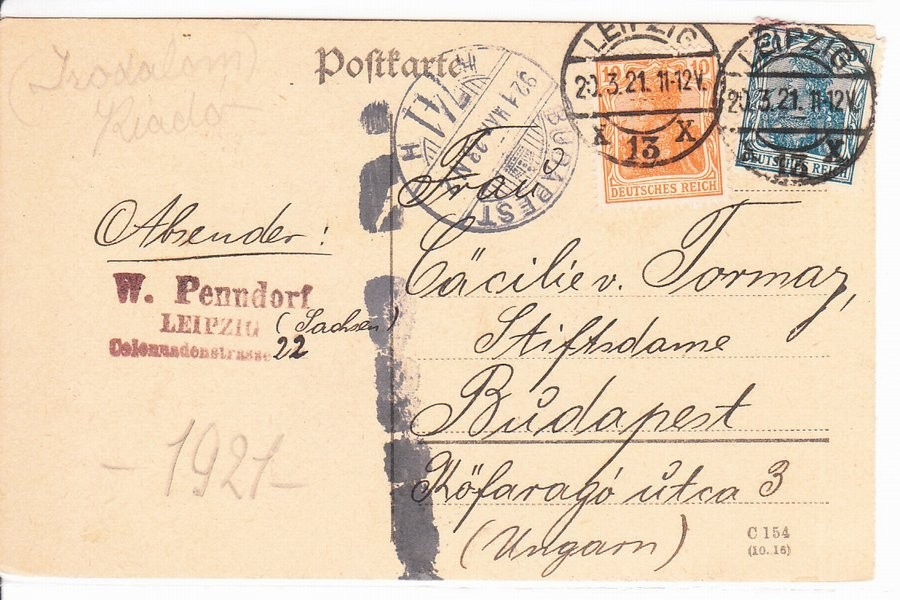 (Irodalom)
Kiadó
Postkarte
BUDAPEST
921 MÁR
LEIPZIG
20.3.21. 11-12V.
X 13 X
10 10
DEUTSCHES REICH
LEIPZIG
20.3.21. 11-12V.
13 X
DEUTSCHES REICH
Absender:
W. Penndorf
LEIPZIG (Sachsen)
Colonnadenstrasse 22
- 1921 -
Frau
Cäcilie v. Tormay,
Stiftsdame
Budapest
Kőfaragó utca 3
(Ungarn)
C 154
(10. 16)